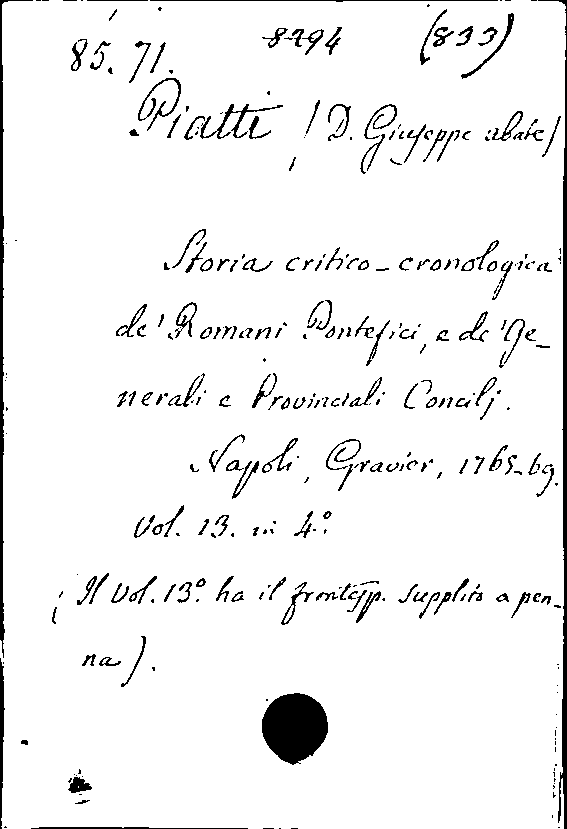 85. 71. 8294 (833)
Piatti, / D. Giuseppe abate /
Storia critico-cronologica
de' Romani Pontefici, e de' Ge-
nerali e Provinciali Concilj.
Napoli, Gravier, 1765-69.
Vol. 13. in 4.º
( Il Vol. 13º. ha il frontesp. supplito a pen-
na ).